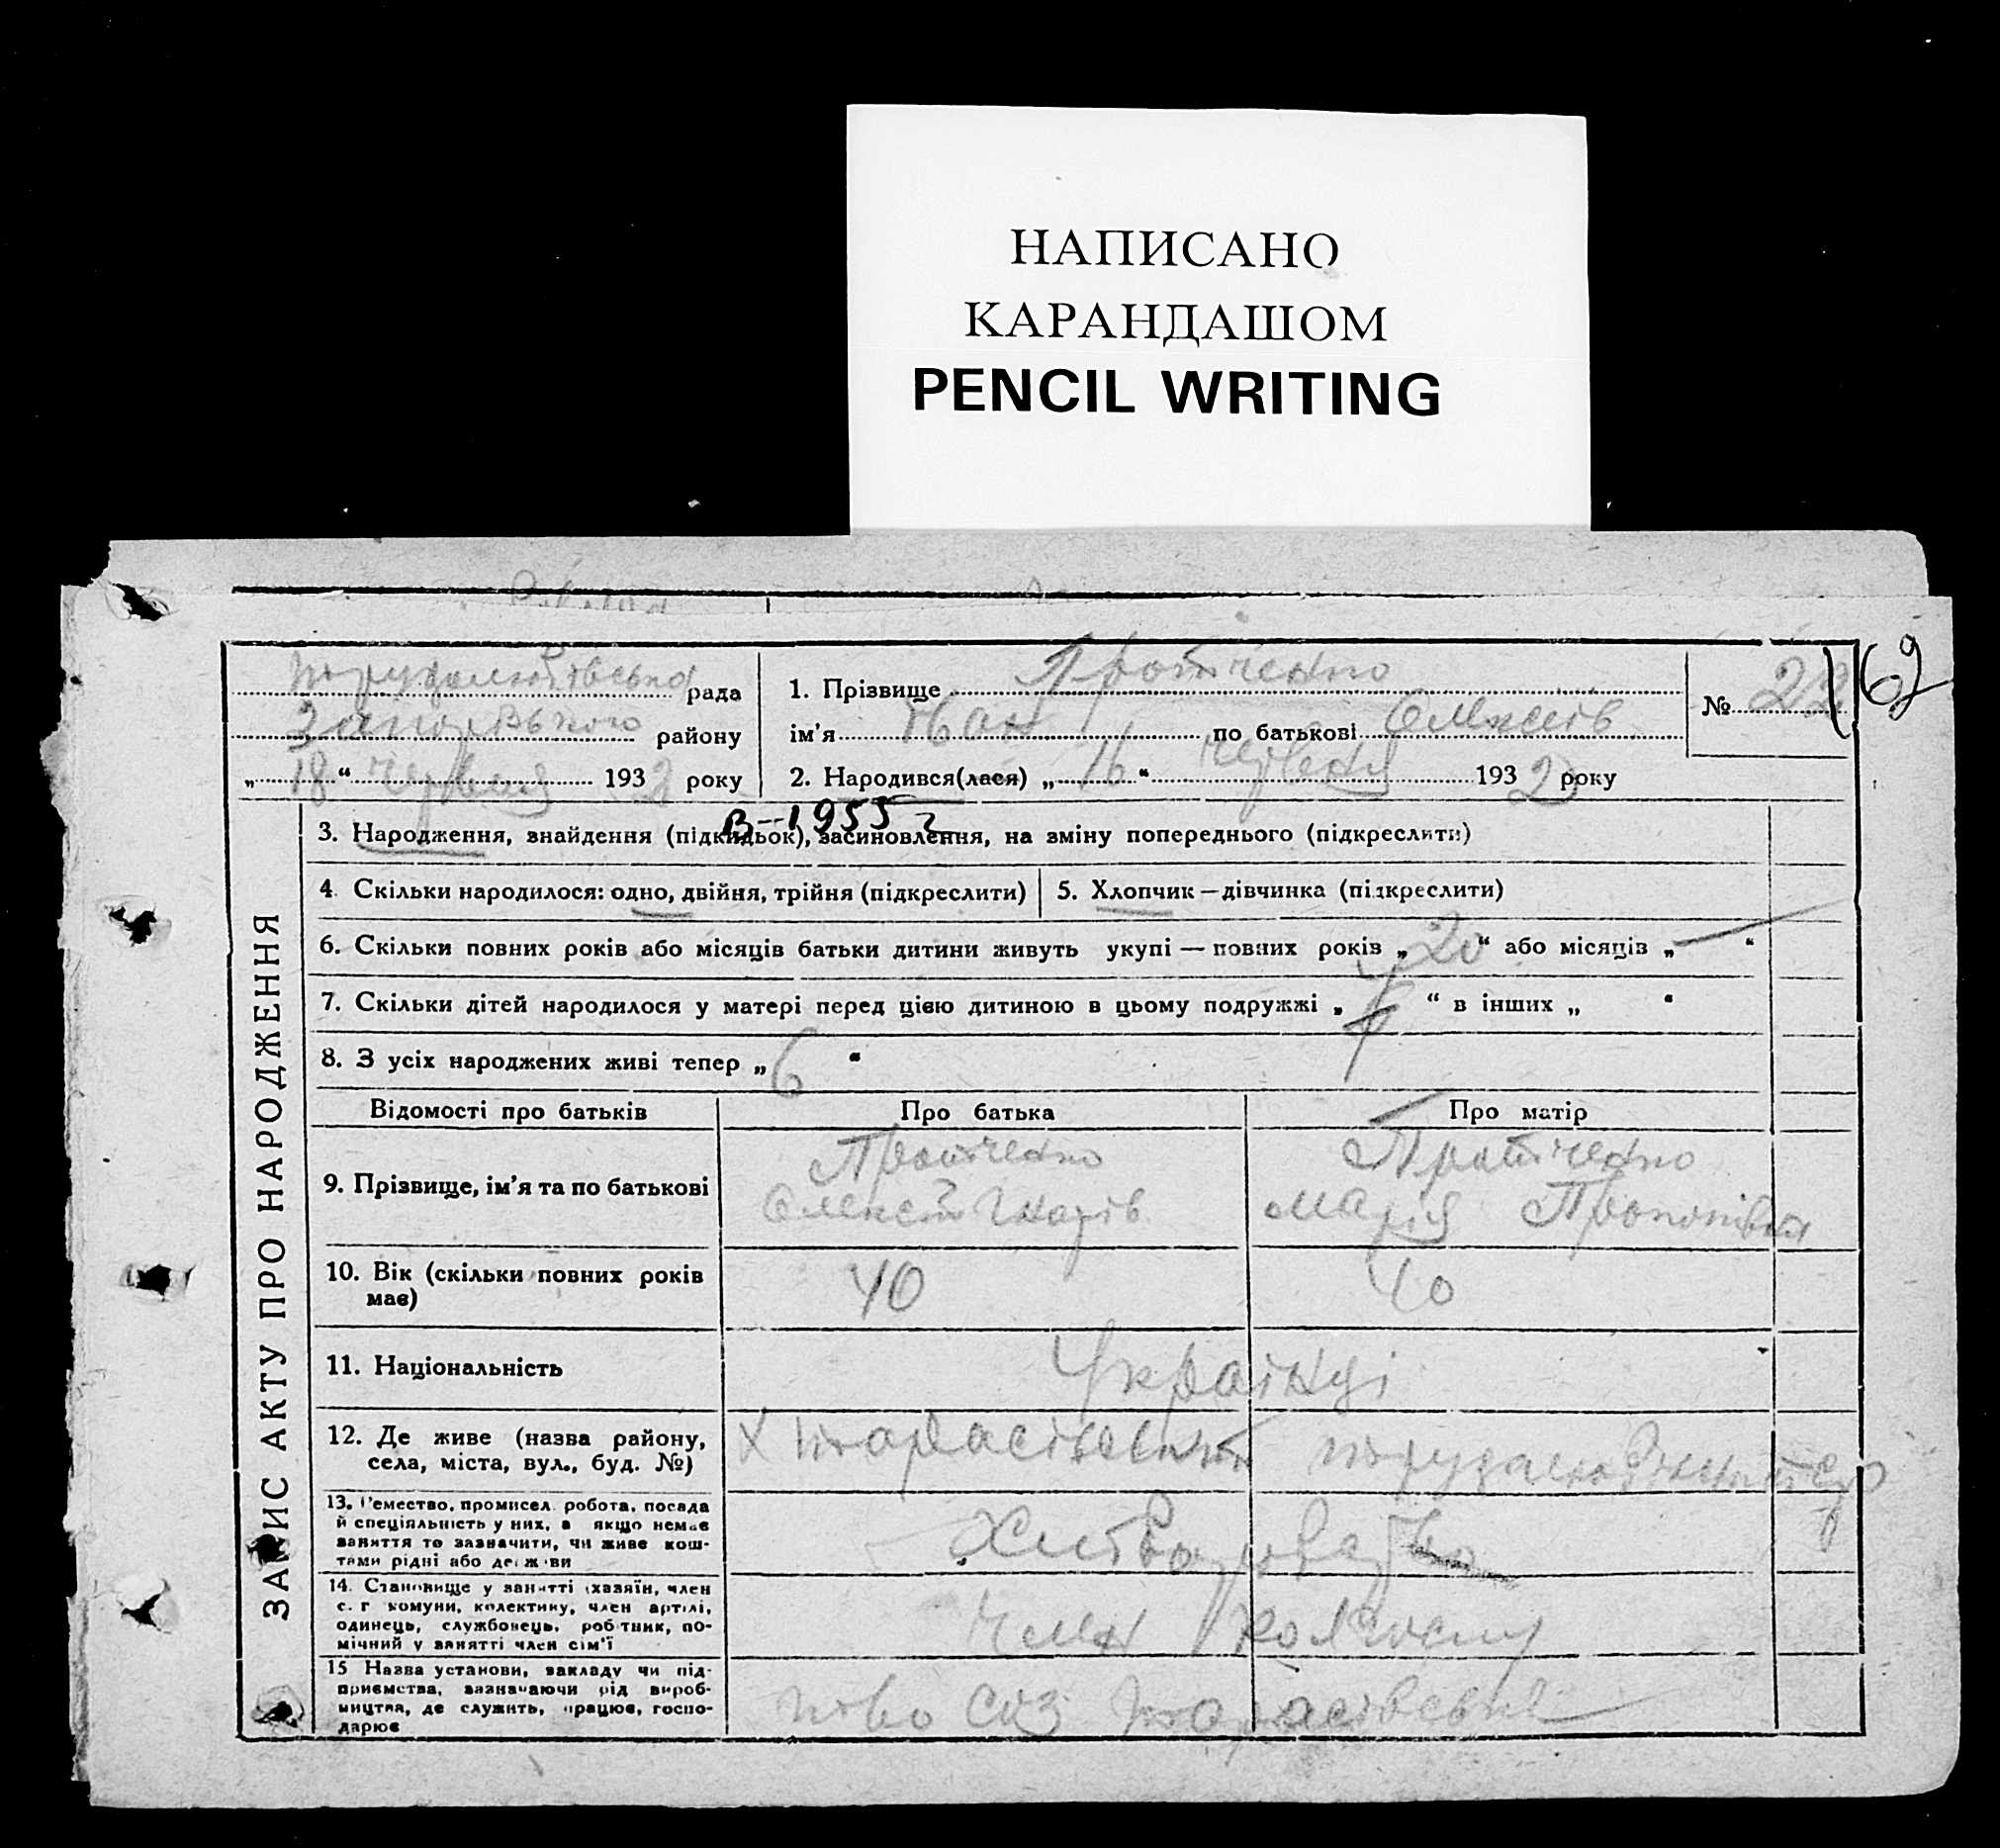 НАПИСАНО
КАРАНДАШОМ
PENCIL WRITING
рада
району
„ 18 “ Червня 1932 року
1. Прізвище Протченко
ім'я Іван по батькові
2. Народився(лася) „ 16 “ Червня 1932 року
№ 22
62
В-1955 г
ЗАПИС АКТУ ПРО НАРОДЖЕННЯ
3. Народження, знайдення (підкидьок), засиновлення, на зміну попереднього (підкреслити)
4. Скільки народилося: одно, двійня, трійня (підкреслити)
5. Хлопчик — дівчинка (підкреслити)
6. Скільки повних років або місяців батьки дитини живуть укупі — повних років „ 20 “ або місяців „ — “
7. Скільки дітей народилося у матері перед цією дитиною в цьому подружжі „ “ в інших „ “
8. З усіх народжених живі тепер „ 6 “
Відомості про батьків
Про батька
Про матір
9. Прізвище, ім'я та по батькові
Протченко
Олексій
Протченко
Марія
10. Вік (скільки повних років
має)
40
40
11. Національність
Українці
12. Де живе (назва району,
села, міста, вул., буд. №)
Х Тарасівський
13. Ремество, промисел, робота, посада
й спеціяльність у них, а якщо немає
заняття то зазначити, чи живе кош-
тами рідні або держави
14. Становище у занятті (хазяїн, член
с. г комуни, колективу, член артілі,
одинець, службовець, робітник, по-
мічний у занятті член сім'ї
Член колгоспу
15 Назва установи, закладу чи під-
приємства, зазначаючи рід вироб-
ництва, де служить, працює, госпо-
дарює